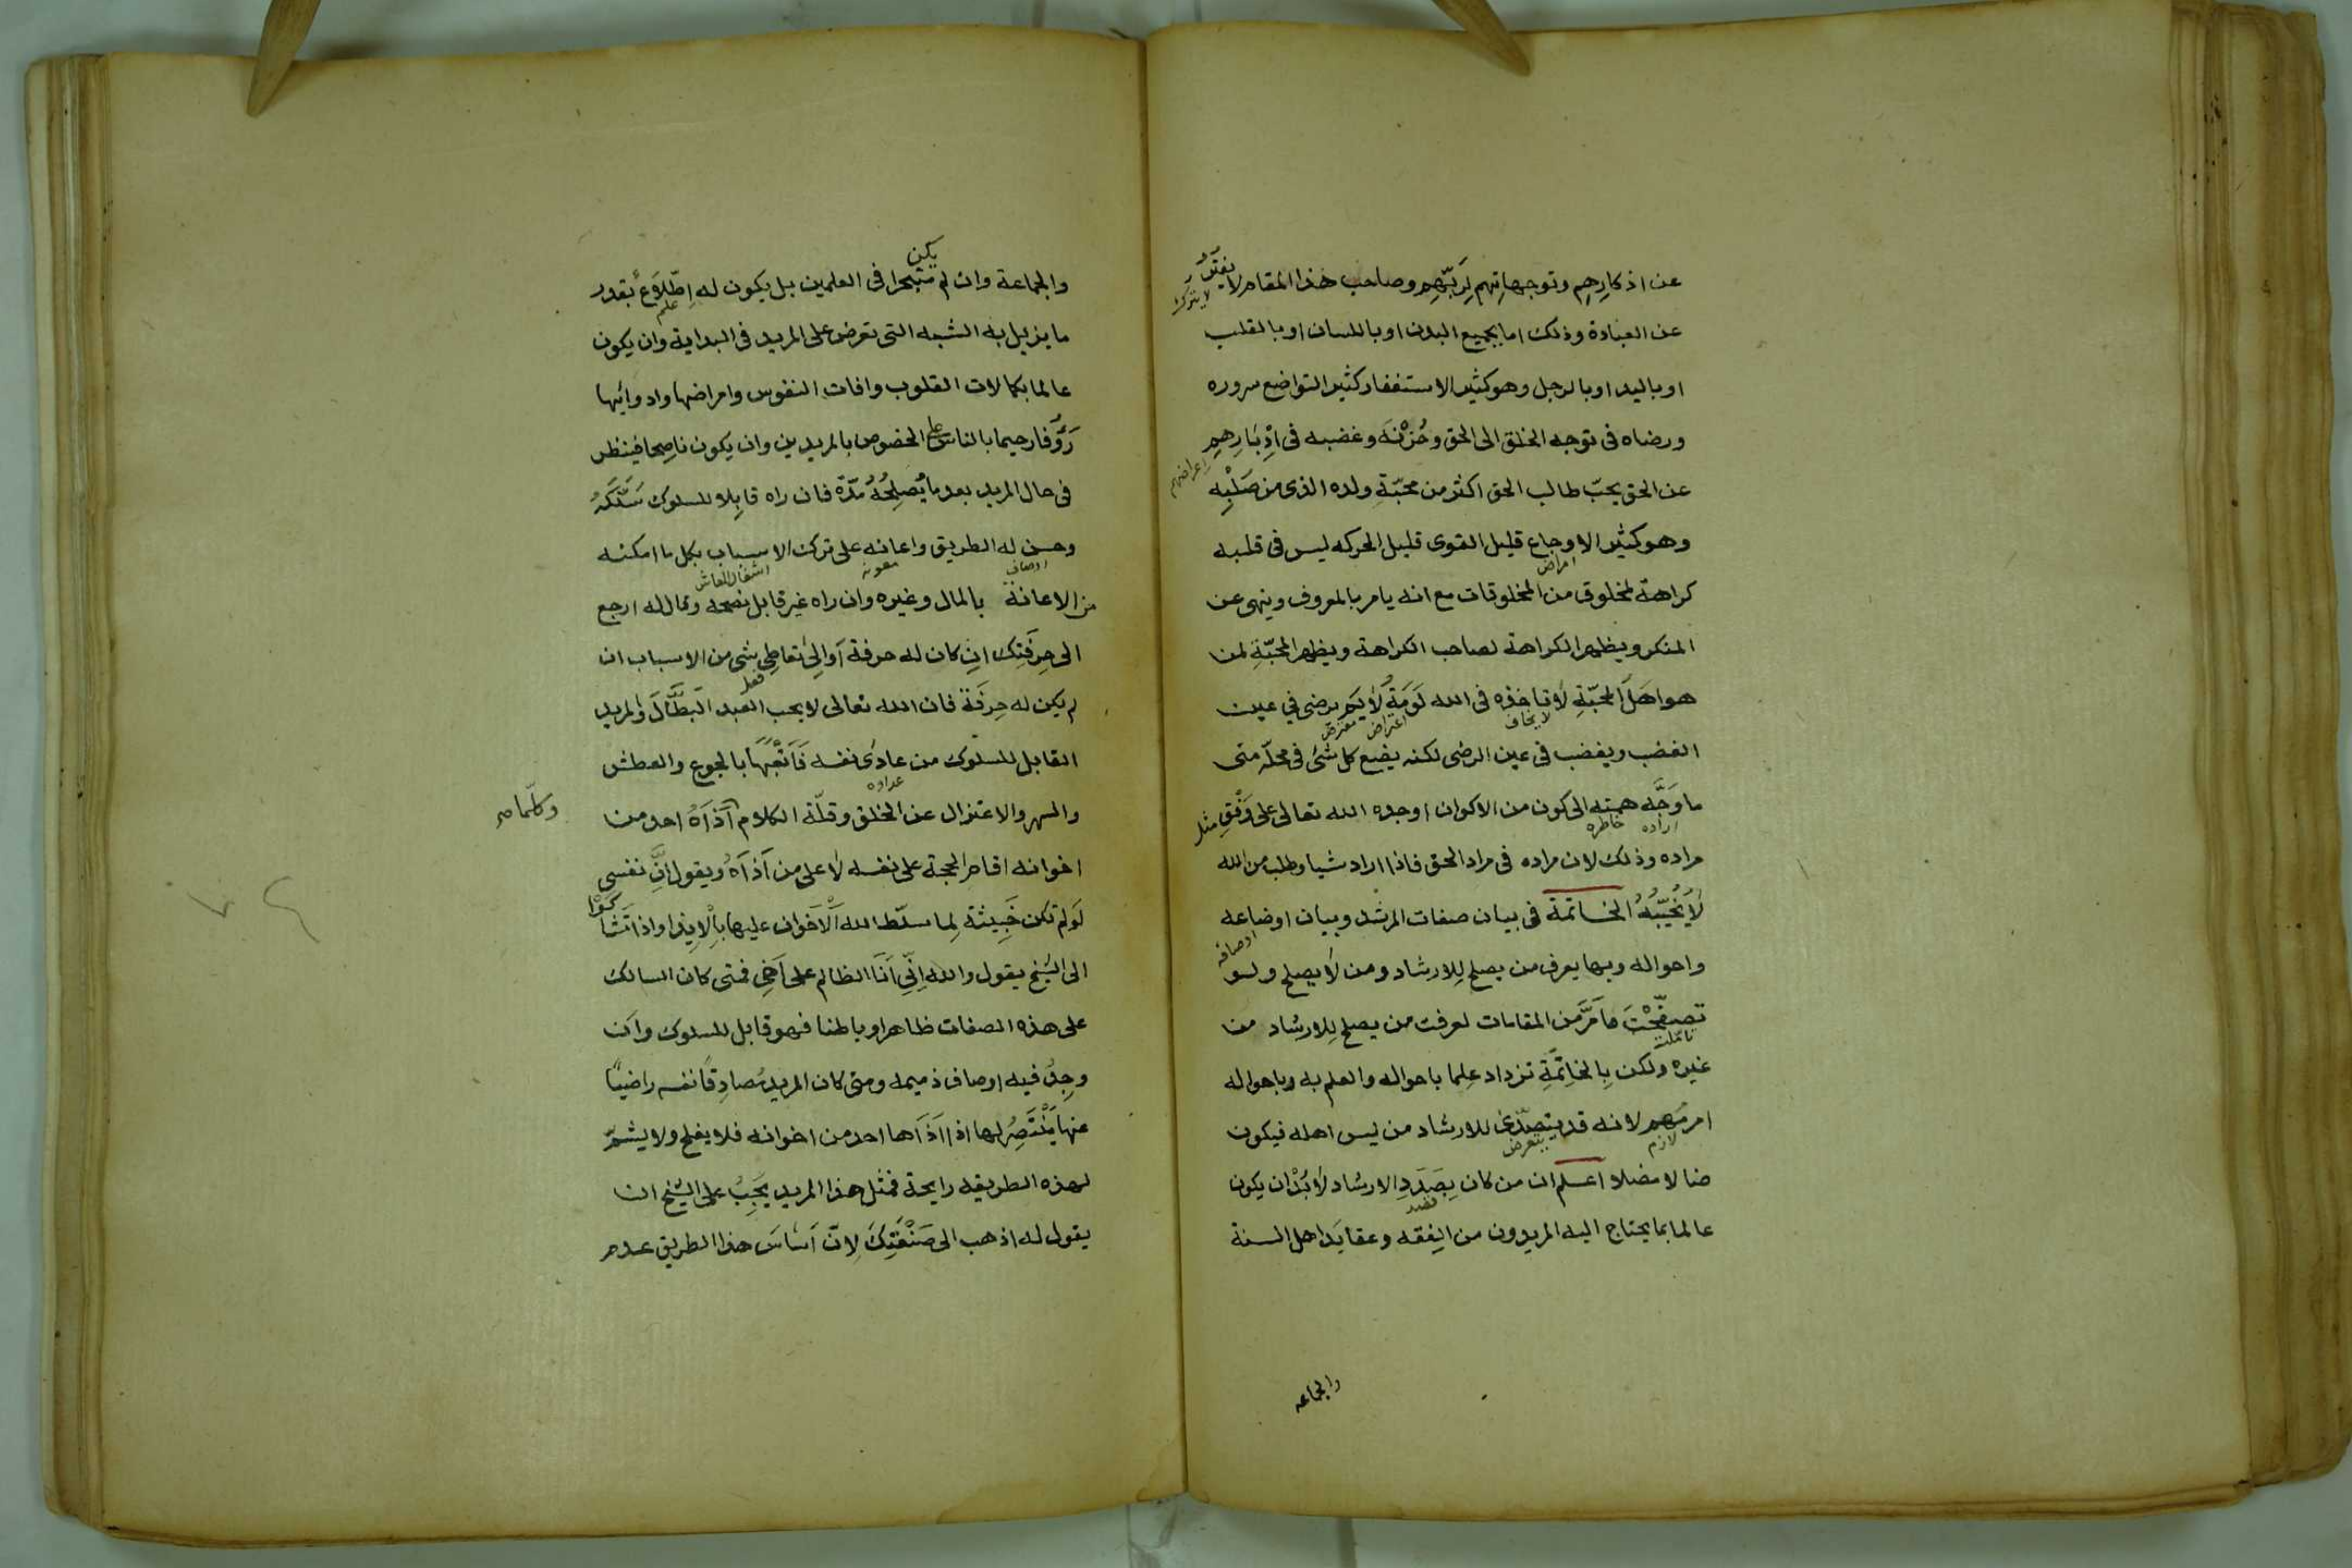 عن اذكارِهِم وتوجهاتهم لِرَبِّهِم وصاحب هذا المقام لا يفتر
لا يترك
عن العبادة وذلك اما بجميع البدن او باللسان او بالقلب
او باليد او بالرجل وهو كثير الاستغفار كثير التواضع سروره
ورضاه فى توجه الخلق الى الحق وحُزْنه وغضبه فى اِدْبَارِهِم
اعراضهم
عن الحق يحبّ طالب الحق اكثر من محبّةِ ولده الذى من صُلْبِه
وهو كثير الاوجاع قليل القوى قليل الحركه ليس فى قلبه
امراض
كراهة لمخلوق من المخلوقات مع انه يامر بالمعروف وينهى عن
المنكر ويظهر الكراهة لصاحب الكراهة ويظهر المحبّةِ لمن
هو اهَل المحبّةِ لا تاخذه فى الله لَوْمَةُ لايَم يرضى في عين
لا يخاف اعتراض معترض
الغضب ويغضب فى عين الرضى لكنه يضع كل شئ فى محلّه متى
ما وَجَّه همته الى كون من الاكوان اوجده الله تعالى على وَفْقِ
اراده خاطره مثل
مراده وذلك لان مراده فى مراد الحق فاذا اراد شيا وطلب من الله
لا يُخَيِّبُهُ الخاتمة فى بيان صفات المرشد وبيان اوضاعه
اوصافه
واحواله وبها يعرف من يصلح لِلارشاد ومن لا يصلح ولو
تصفّحْتَ ما مَرَّ من المقامات لعرفت من يصلح لِلارشاد من
تاملت
غيره ولكن بِالخاتِمَةِ تزداد عِلما باحواله والعلم به وباحواله
امر مُهِم لانه قد يتصدّىٰ للارشاد من ليس اهله فيكون
لازم يتعرض
ضالا مضلا اعلم ان من كان بِصَدَدِ الارشاد لا بُدّ ان يكون
قصد
عالما بما يحتاج اليه المريدون من الفِقه وعقايد اهل السنة
والجماعه
يكن
والجماعة وان لم متبحرا فى العلمين بل يكون له اِطّلاعٌ بقدر
علم
ما يزيل به الشبه التى تعرض على المريد فى البداية وان يكون
عالما بكمالات القلوب وافات النفوس وامراضها وادوائِها
رَؤُفا رحيما بالناس على الخصوص بالمريدين وان يكون ناصِحا فينظر
فى حال المريد بعد ما يُصلِحُهُ مُدّة فان راه قابِلا للسلوك سَلَّكَهُ
وحسن له الطريق واعانه على ترك الاسباب بكل ما امكنه
اوصاف معونه اشغال المعاش
من الاعانة بالمال وغيره وان راه غير قابل نصحه وقال له ارجع
الى حِرفَتِك ان كان له حرفة اوالى تعاطى شى من الاسباب ان
فعل
لم يكن له حِرفَة فان الله تعالى لا يحب العبد البَطَّال والمريد
القابل للسلوك من عادى نفسه فَاتْعَبَهَا بالجوع والعطش
عداوه
والسهر والاعتزال عن الخلق وقلّة الكلام آذاهُ احد من
وكلّما صح
اخوانه اقام الحجة على نفسه لا على من آذاهُ ويقول اِنَّ نفسى
لَو لم تكن خَبِيثة لِما سلّط الله الاخوان عليها بِالايذا واذا تَشَاكَوْا
الى الشيخ يقول والله اِنّى اَنَا الظالم على اَخِى فمتى كان السالك
على هذه الصفات ظاهرا وباطنا فهو قابل للسلوك وان
وجِدَ فيه اوصاف ذميمه ومتى كان المريد مُصادِقًا نفسه راضِيًا
عنها يَنْتَصِرُ لها اذا آذاها احد من اخوانه فلا يفلح ولا يشمّ
لهذه الطريقه رايحة فمثل هذا المريد يَجِبُ على الشيخ ان
يقول له اذهب الى صَنْعَتِكَ لانّ اَساسَ هذا الطريق عدم